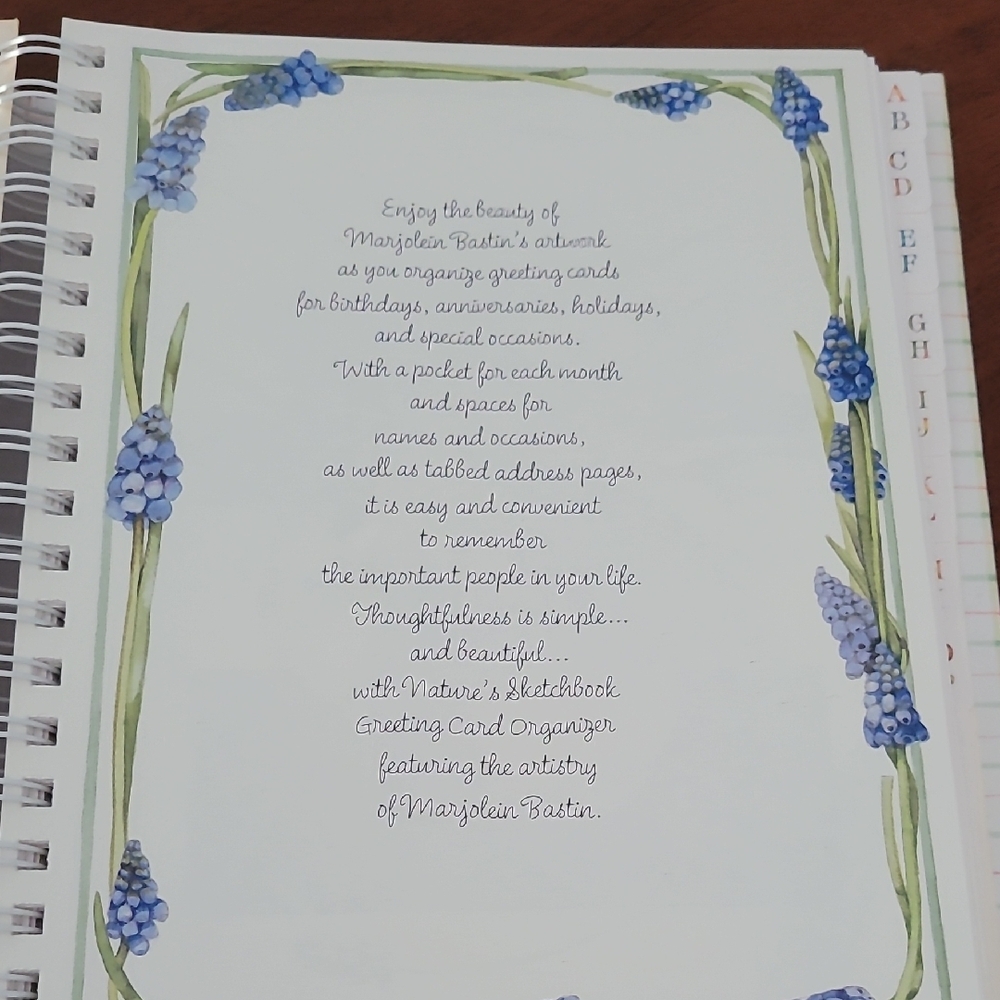 Enjoy the beauty of
Marjolein Bastin's artwork
as you organize greeting cards
for birthdays, anniversaries, holidays,
and special occasions.
With a pocket for each month
and spaces for
names and occasions,
as well as tabbed address pages,
it is easy and convenient
to remember
the important people in your life.
Thoughtfulness is simple...
and beautiful...
with Nature's Sketchbook
Greeting Card Organizer
featuring the artistry
of Marjolein Bastin.
A
B
C
D
E
F
G
H
I
J